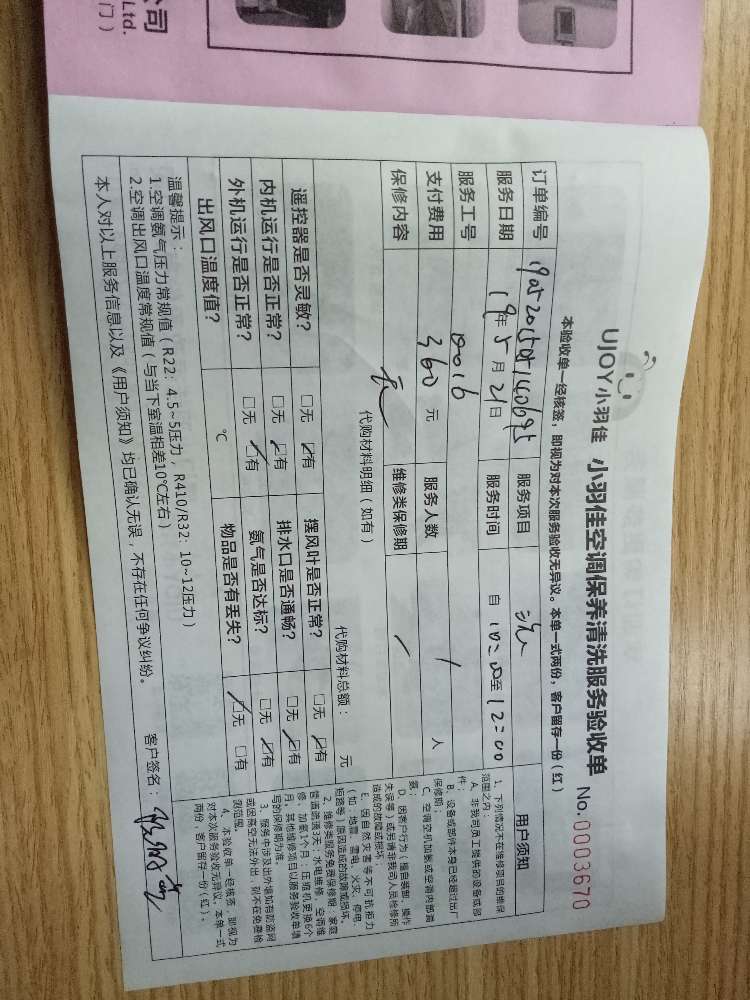 公司
Ltd.
门）
UJOY小羽佳 小羽佳空调保养清洗服务验收单 No.0003670
本验收单一经核签，即视为对本次服务验收无异议。本单一式两份，客户留存一份（红）
订单编号 服务项目 洗
服务日期 19年5月21日 服务时间 自10:00至12:00
服务工号 0016
支付费用 360元 服务人数 1人
保修内容 维修类保修期 /
代购材料明细（如有）
代购材料总额： 元
遥控器是否灵敏？ □无 ☑有 摆风叶是否正常？ □无 ☑有
内机运行是否正常？ □无 ☑有 排水口是否通畅？ □无 ☑有
外机运行是否正常？ □无 ☑有 氨气是否达标？ □无 ☑有
出风口温度值？ ℃ 物品是否有丢失？ ☑无 □有
温馨提示：
1.空调氨气压力常规值（R22：4.5~5压力，R410/R32：10~12压力）
2.空调出风口温度常规值（与当下室温相差10℃左右）
本人对以上服务信息以及《用户须知》均已确认无误，不存在任何争议纠纷。
客户签名：
用户须知
1、下列情况不在维修项目的维保
范围之内：
A、非我司员工提供的设备或部
件；
B、设备或部件本身已经超过出厂
保修期；
C、空调空机加氨或空调内部漏
氨；
D、因客户行为（擅自装卸、操作
失误等）或另请非我司人员维修所
造成的故障或损坏；
E、因自然灾害等不可抗拒力
（如：地震、雷电、火灾、停电、
短路等）原因造成的故障或损坏。
2、维修类服务免费保修期：家庭
管道疏通3天；水电维修、空调维
修、加氨1个月；压缩机更换6个
月，其他维修项目以服务验收单填
写的保修期为准。
3、服务中涉及出外墙如有防盗网
或因高空无法外出，则不在免费检
测范围。
4、本验收单一经核签，即视为
对本次服务验收无异议，本单一式
两份，客户留存一份（红）。